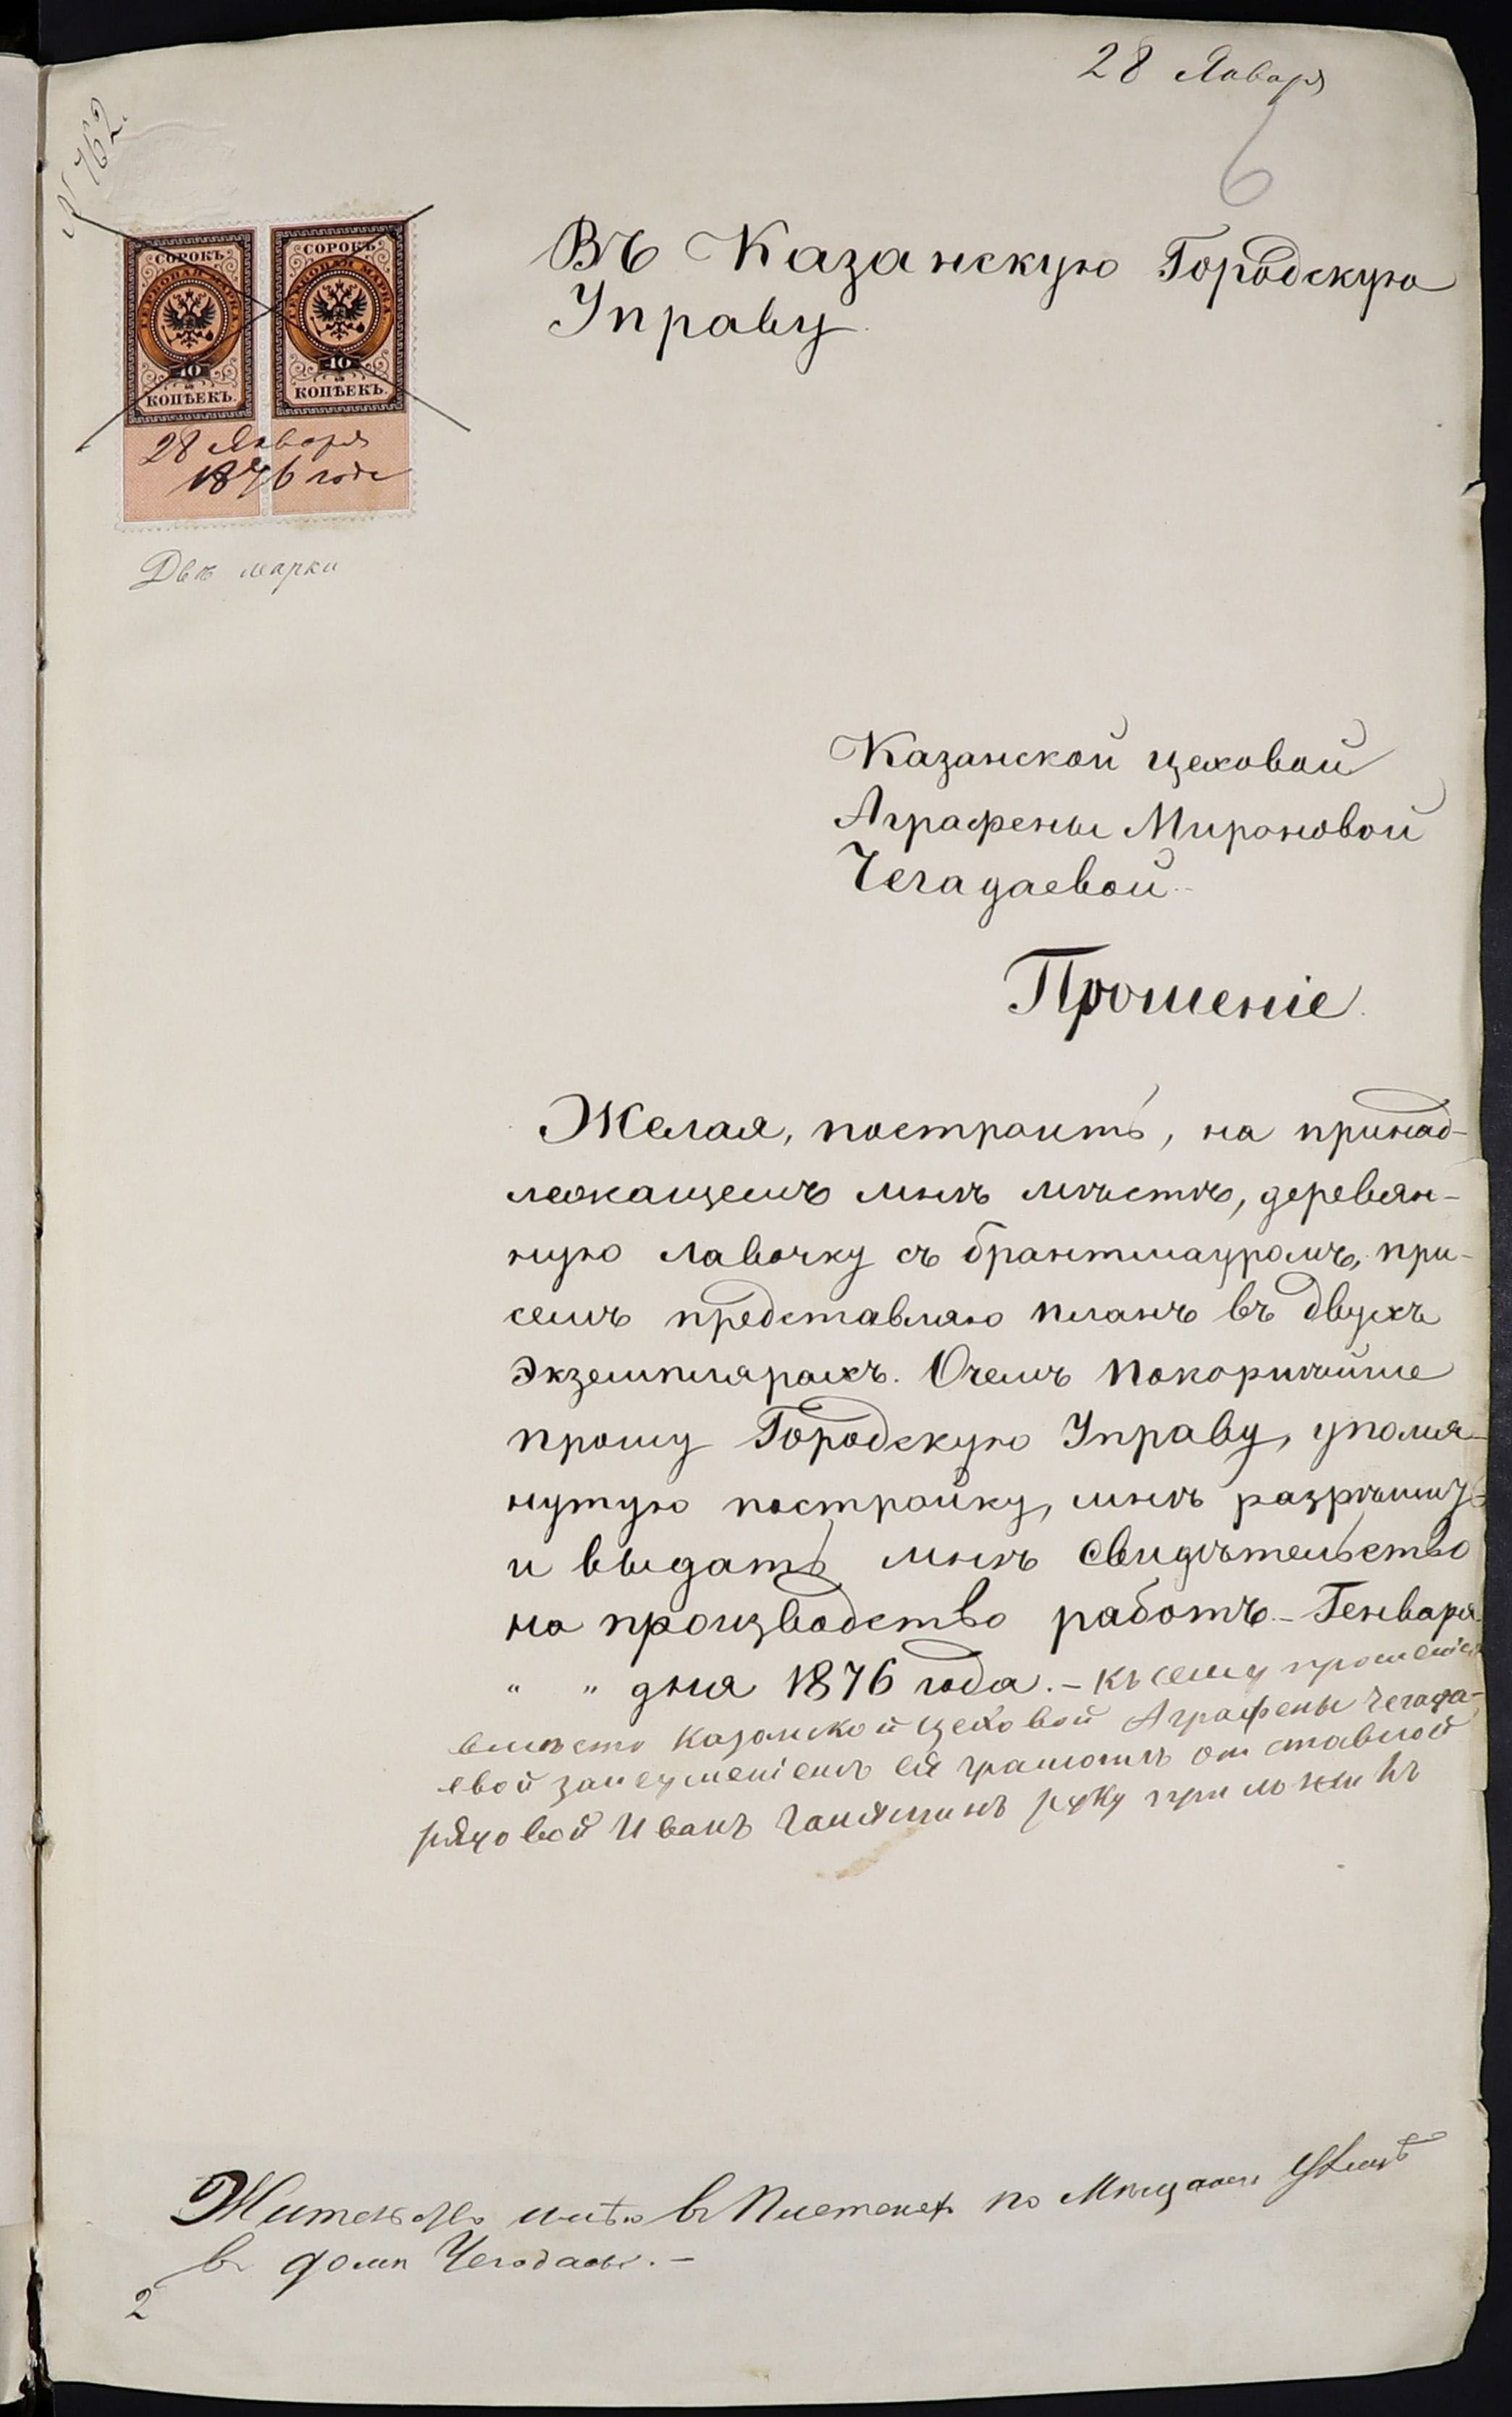 28 Января
№ 762.
6
СОРОКЪ СОРОКЪ
ГЕРБОВАЯ МАРКА ГЕРБОВАЯ МАРКА
40 40
КОПѢЕКЪ. КОПѢЕКЪ.
28 Января
1876 года
Двѣ марки
Въ Казанскую Городскую
Управу.
Казанской цеховой
Аграфены Мироновой
Чегадаевой
Прошеніе.
Желая, построить, на принад-
лежащемъ мнѣ мѣстѣ, деревян-
ную лавочку съ брантмауромъ, при-
семъ представляю планъ въ двухъ
экземплярахъ. Очемъ покорнѣйше
прошу Городскую Управу, упомя-
нутую постройку, мнѣ разрѣшить
и выдать мнѣ свидѣтельство
на производство работъ.– Генваря
" " дня 1876 года.– Къ сему прошенію
вмѣсто казанской цеховой Аграфены Чегада-
евой занеумѣніемъ ея грамотѣ отставной
рядовой Иванъ руку приложилъ
Жительство имѣю въ по улицѣ
въ домѣ
2